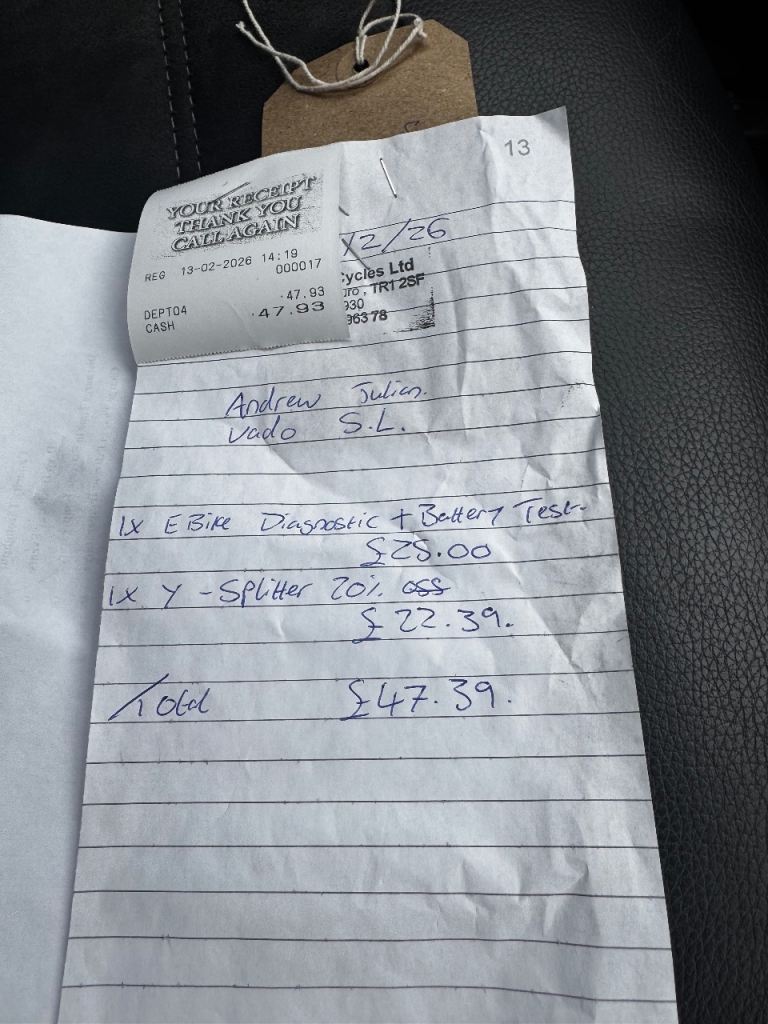 13
YOUR RECEIPT
THANK YOU
CALL AGAIN
REG 13-02-2026 14:19
000017
DEPT04 ·47.93
CASH ·47.93
/2/26
ycles Ltd
uro, TR1 2SF
930
963 78
Andrew Julian.
Vado S.L.
1X E Bike Diagnostic + Battery Test.
£25.00
1X Y - Splitter 20% off
£22.39.
Total £47.39.